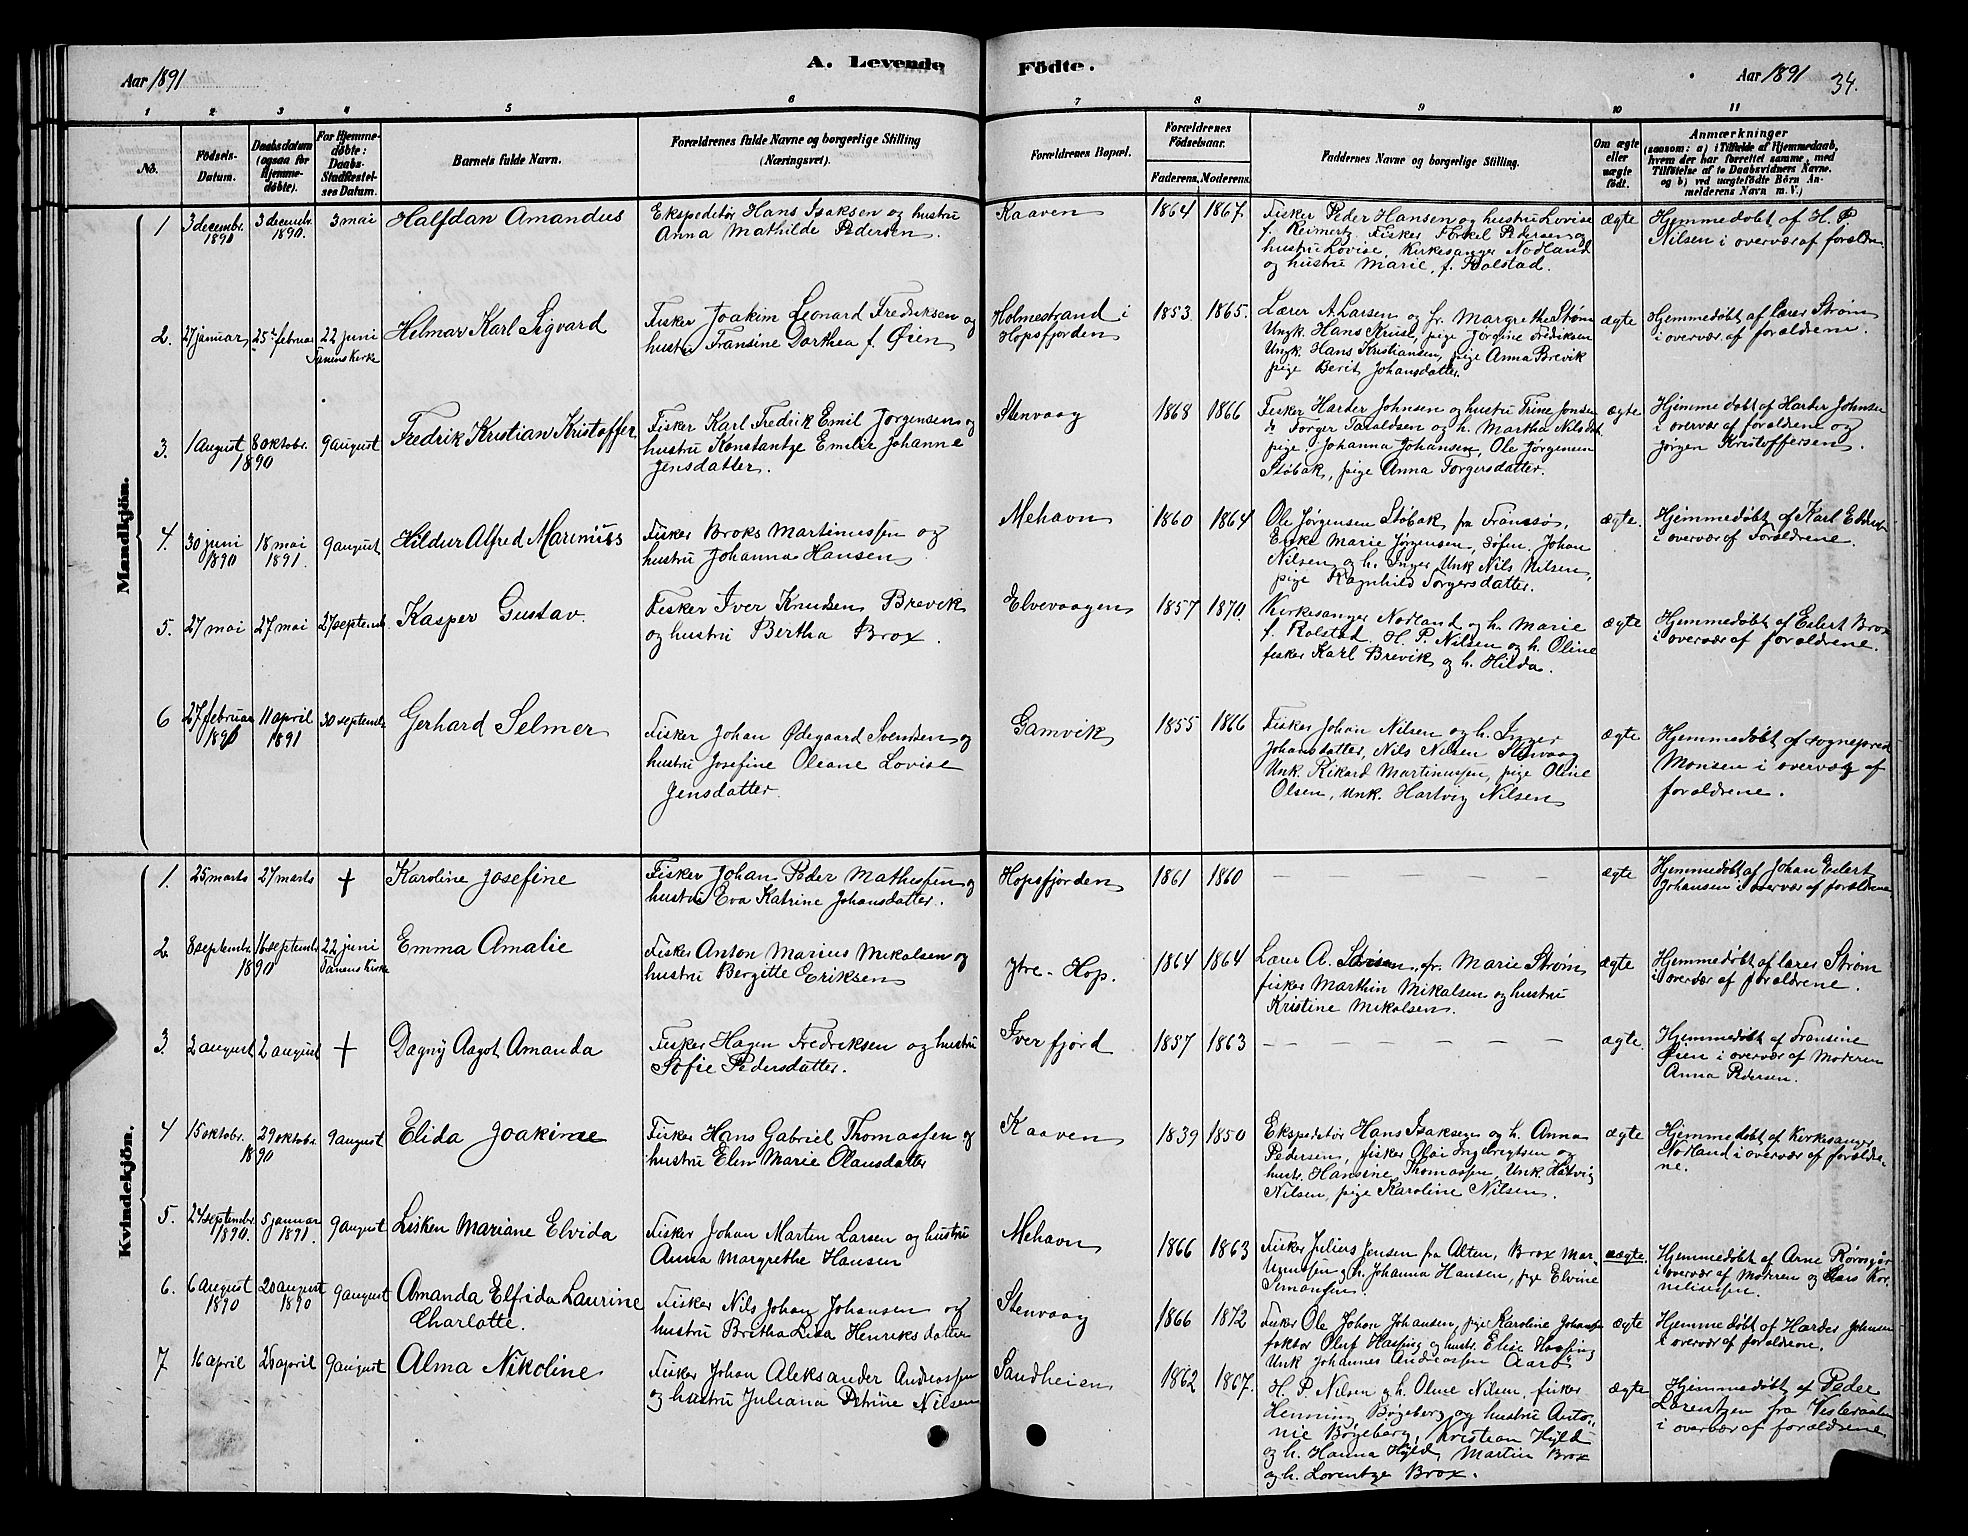 Aar 1891
A. Levende Födte.
Aar 1891
34.
1 2 3 4 5 6 7 8 9 10 11
No.
Födsels-Datum.
Daabsdatum (ogsaa for Hjemmedøbte).
For Hjemmedøbte: Daabs-Stadfæstelses Datum.
Barnets fulde Navn.
Forældrenes fulde Navne og borgerlige Stilling (Næringsvei).
Forældrenes Bopæl.
Forældrenes Födselsaar.
Faderens. Moderens.
Faddernes Navne og borgerlige Stilling.
Om ægte eller uægte født.
Anmærkninger
(saasom: a) i Tilfælde af Hjemmedaab, hvem der har forrettet samme, med Tilföielse af to Daabsvidners Navne. og b) ved uægtefödte Börn Anmelderens Navn m. V.)
Mandkjön.
1 3 decembr. 1890 3 decembr. 1890. 3 mai Halfdan Amandus
Ekspeditør Hans Isaksen og hustru
Anna Mathilde Pedersen.
Kaaven 1864 1867.
Fisker Peder Hansen og hustru Lovise
f. Reimertz, Fisker Torkel Pedersen og
hustru Lovise, Kirkesanger Nodland
og hustru Marie, f. Rolstad.
ægte
Hjemmedøbt af H. P
Nilsen i overvær af foræld
2. 27 januar 25de februar 22 juni Tanens Kirke Hilmar Karl Sigvard
Fisker Joakim Leonard Fredriksen og
hustru Fransine Dorthea f. Øien
Holmestrand i
Hopsfjorden
1853 1865.
Lærer A. Larsen og fr. Margrethe Strøm
Ungk. Hans Kruse, pige Jørgine Fredriksen
Ungk. Hans Kristiansen, pige Anna Brevik
pige Berit Johansdatter.
ægte
Hjemmedøbt af lærer Strøm
i overvær af forældrene.
3. 1 August 8 oktobr. 1890 9 august Fredrik Kristian Kristoffer
Fisker Karl Fredrik Emil Jørgensen og
hustru Konstantze Emilie Johanne
Jensdatter.
Stenvaag 1868 1866
Fisker Harder Johnsen og hustru Trine
Torger Taraldsen og h. Martha Nilsdt.
pige Johanna Johansen, Ole Jørgensen
Støbak, pige Anna Torgersdatter.
ægte
Hjemmedøbt af Harder Johnsen
i overvær af forældrene og
Jørgen Kristoffersen.
4. 30 juni 1890 18 mai 1891. 9 august Hildur Alfred Marinius
Fisker Broks Martinussen og
hustru Johanna Hansen
Mehavn 1860 1864
Ole Jørgensen Støbak fra
Enke Marie Jørgensen, Johan
Nilsen og h. Inger Unk Nils Nilsen,
pige Ragnhild Torgersdatter.
ægte.
Hjemmedøbt af Karl
i overvær af Forældrene.
5. 27 mai 27 mai 27 septemb. Kasper Gustav.
Fisker Iver Knudsen Brevik
og hustru Bertha Brox.
Elvevaagen 1857 1870.
Kirkesanger Nodland og h. Marie
f. Rolstad. H. P. Nilsen og h. Oline
fisker Karl Brevik og h. Hilda.
ægte
Hjemmedøbt af Eilert Brox
i overvær af forældrene.
6 27 februar 1891 11 april 1891 30 septembr Gerhard Selmer
Fisker Johan Ødegaard Svendsen og
hustru Josefine Oleane Lovise
Jensdatter.
Gamvik 1855 1866
Fisker Johan Nilsen og h. Inger
Johansdatter, Nils Nilsen Stenvaag
Unk. Rikard Martinussen, pige Oline
Olsen, Unk. Hartvig Nilsen
ægte
Hjemmedøbt af sognepræst
Monsen i overvær af
forældrene.
Kvindekjön.
1. 25 marts 27 marts + Karoline Josefine
Fisker Johan Peder Mathissen og
hustru Eva Katrine Johansdatter.
Hopsfjorden 1861 1860
— — — — — —
ægte
Hjemmedøbt af Johan Eilert
Johansen i overvær af forældrene
2. 8 septembr. 16 septembr. 1890 22 juni Tanens Kirke Emma Amalie
Fisker Anton Marius Mikalsen og
hustru Bergitte Eriksen
Ytre-Hop. 1864 1864
Lærer A. fr. Marie Strøm
fisker Marthin Mikalsen og hustru
Kristine Mikalsen.
ægte
Hjemmedøbt af lærer Strøm
i overvær af forældrene.
3. 2 august 2 august + Dagny Aagot Amanda
Fisker Hagen Fredriksen og hustru
Sofie Pedersdatter.
Iverfjord 1857 1863
— — — — — —
ægte.
Hjemmedøbt af Fransine
Øien i overvær af Moderen
Anna Pedersen.
4 15 oktobr. 29 oktobr. 1890 9 august Elida Joakime
Fisker Hans Gabriel Thomassen og
hustru Elen Marie Olausdatter
Kaaven 1839 1850
Ekspeditør Hans Isaksen og h. Anna
Pedersen, fisker Olai Ingebrigtsen og
hustr. Hansine Thomassen, Unk Hartvig
Nilsen, pige Karoline Nilsen.
ægte
Hjemmedøbt af Kirkesanger
Nodland i overvær af forældre-
ne.
5. 24 septembr 1890. 5 januar 1891. 9 august Lisken Mariane Elvida
Fisker Johan Martin Larsen og hustru
Anna Margrethe Hansen
Mehavn 1866 1863
Fisker Julius Jensen fra Alten, Brox Mar-
og h. Johanna Hansen, pige Elvine
Simonsen
uægte
Hjemmedøbt af Arne
i overvær af Moderen og Lars Kor-
neliussen.
6. 6 august 1890 20 august 1890 9 august Amanda Elfrida Laurine
Charlotte.
Fisker Nils Johan Johansen og
hustru Britha Lisa Henriksdatter
Stenvaag 1866 1872
Fisker Ole Johan Johansen, pige Karoline Johans
faktor Olef Haafing og hustr. Elise Haafing
Unk Johannes Andreassen Aarø
ægte
Hjemmedøbt af Harder Johnsen
i overvær af forældrene.
7 16 april 26 april 9 august Alma Nikoline
Fisker Johan Aleksander Andreassen
og hustru Juliana Petrine Nilsen
Sandheien 1862 1867.
H. P Nilsen og h. Oline Nilsen, fisker
Henning Bøgeberg og hustru Anto-
nie Bøgeberg, Kristian Hyld
og h. Hanna Hyld, Martin Brox
og h. Lorentze Brox.
ægte
Hjemmedøbt af Peder
Lorentzen fra Vesteraalen
i overvær af forældrene